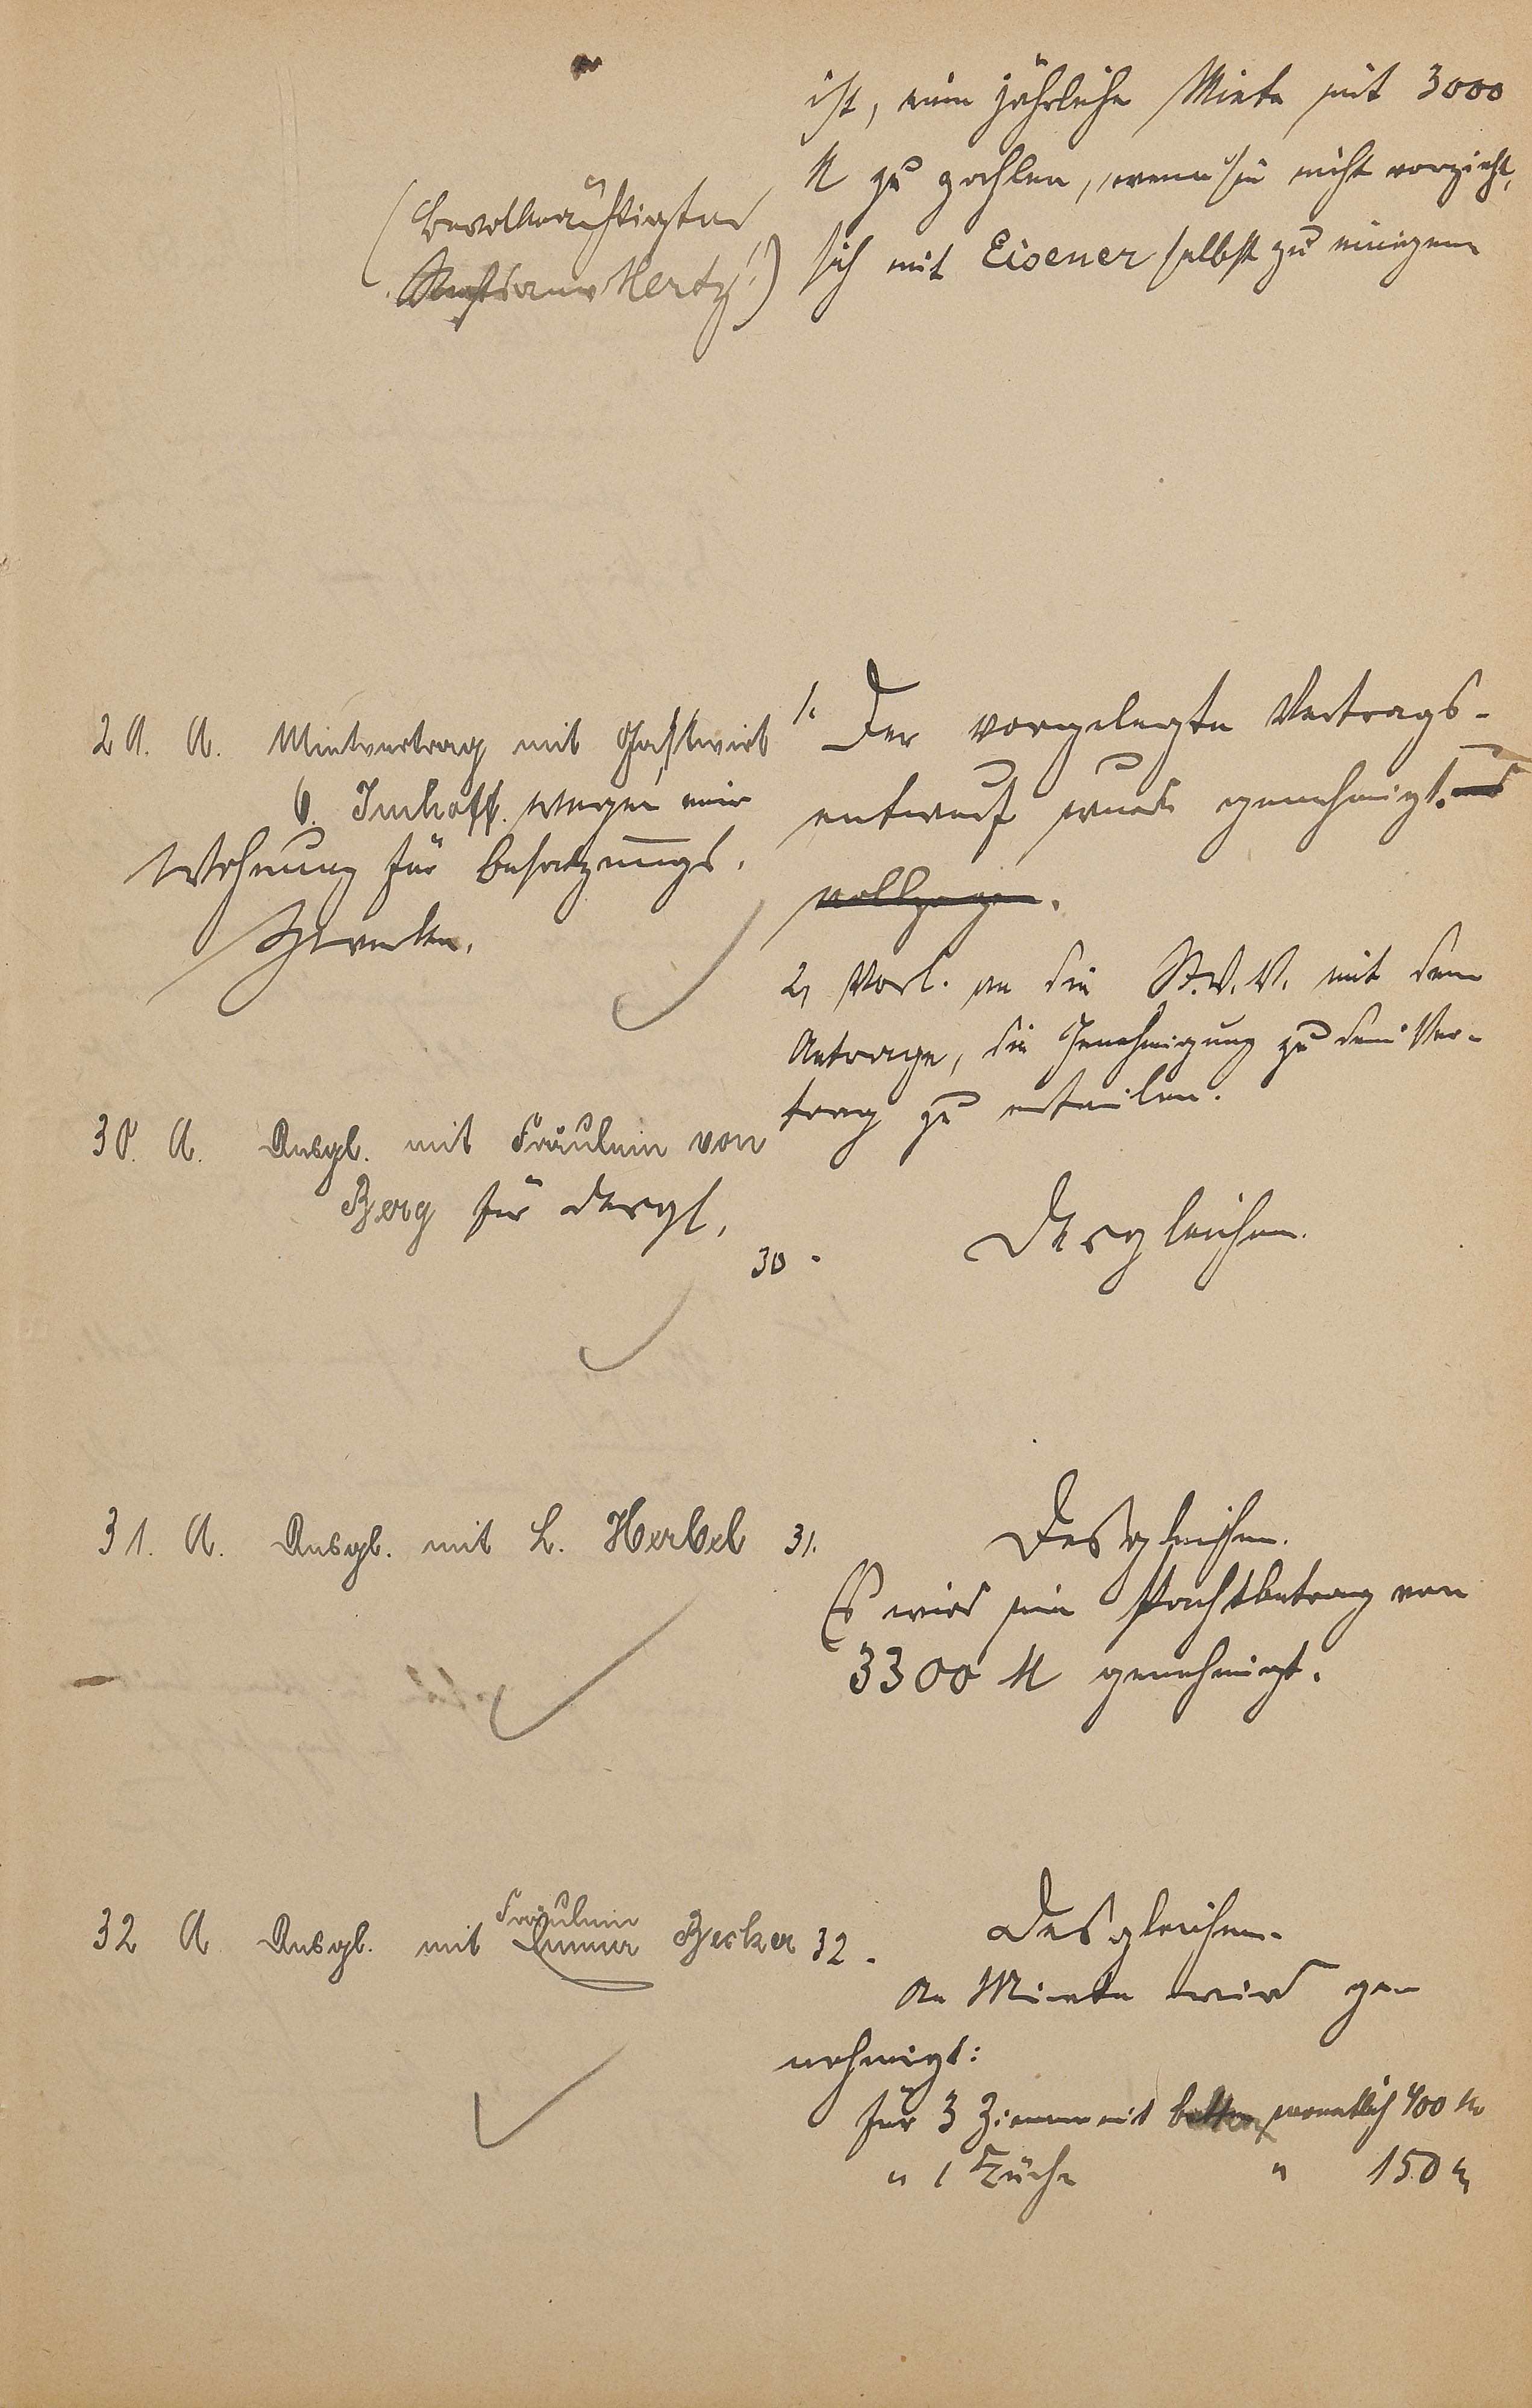 ist, eine jährliche Miete mit 3000
M zu zahlen, wenn sie nicht vorzieht,
sich mit Eisener selbst zu einigen
(Bevollmächtigter
Hertz!)
29. A. Mietvertrag mit Gastwirt
C. Imhoff wegen einer
Wohnung für Besatzungs-
Zwecke.
1. Der vorgelegte Vertrags-
entwurf wurde genehmigt. und
vollzogen.
2, Vorl. an die St.V.V. mit dem
Antrage, die Genehmigung zu dem Ver-
trag zu erteilen.
30. A. Desgl. mit Fräulein von
Berg für dergl.
30. Desgleichen.
31. A. Desgl. mit L. Herbel
31. Desgleichen.
Es wird ein Pachtbetrag von
3300 M genehmigt.
32 A Desgl. mit Fräulein Becker
32. Desgleichen.
An Miete wird ge-
nehmigt:
für 3 Zimmer mit Betten monatlich 400 M
" 1 Küche " 150 "